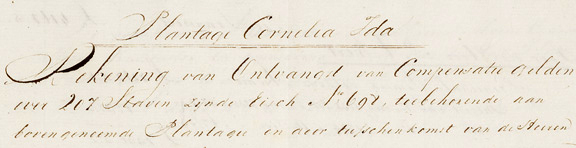 Plantage Cornelia Ida
Rekening van Ontvangst van Compensatie gelden
over 207 Slaven zijnde Eisch No 691, toebehorende aan
bovengenoemde Plantagie en door tusschenkomst van de Heeren